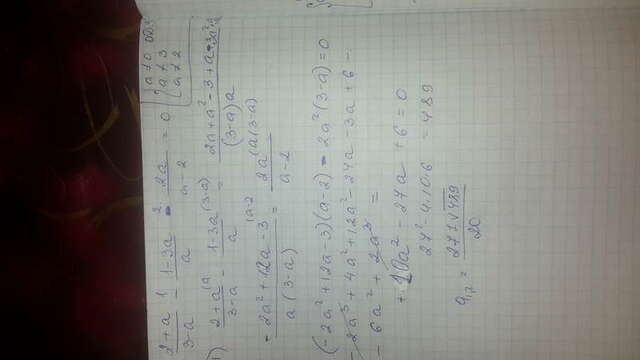 (2+a)/(3-a) - (1-3a)/a - 2a/(a-2) = 0
{ a ≠ 0 ОДЗ
a ≠ 3
a ≠ 2
1) (2+a)/(3-a) - (1-3a)/a = (2a+a²-3+a
(3-a)a
(-2a²+12a-3)/(a(3-a)) = 2a/(a-2)
(-2a²+12a-3)(a-2) - 2a²(3-a) = 0
-2a³+4a²+12a²-24a-3a+6-
-6a²+2a³ =
10a²-27a+6=0
27²-4·10·6 = 489
a₁,₂ = (27±√489)/20